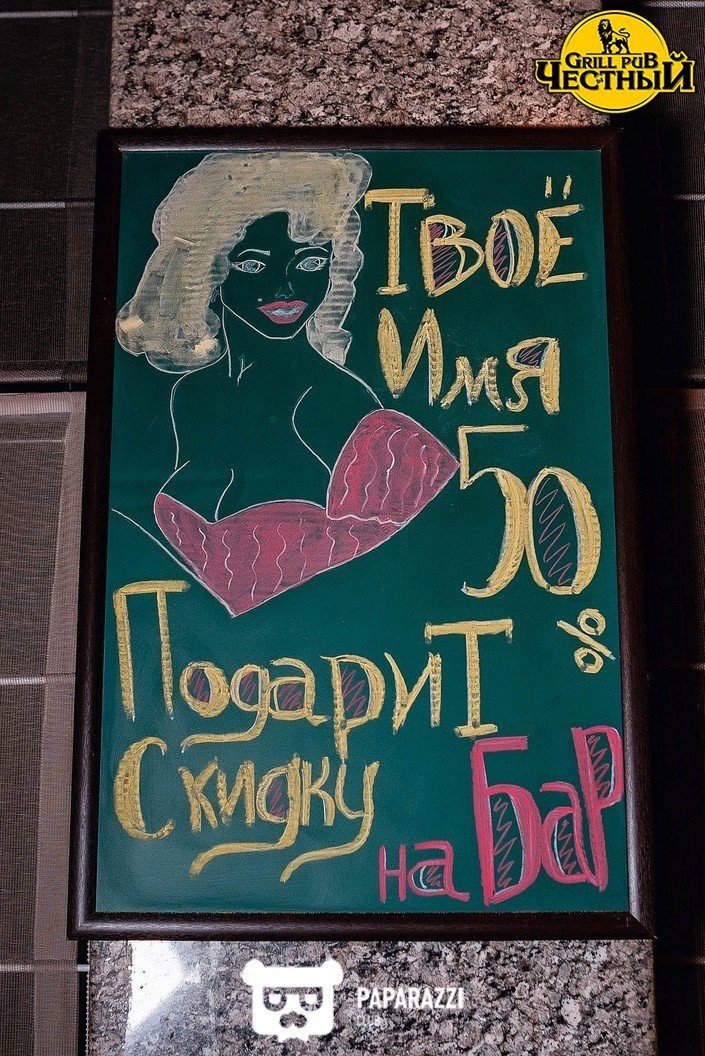 GRILL PUB
ЧЕСТНЫЙ
Твоё
Имя
50
%
Подарит
Скидку
на Бар
PAPARAZZI